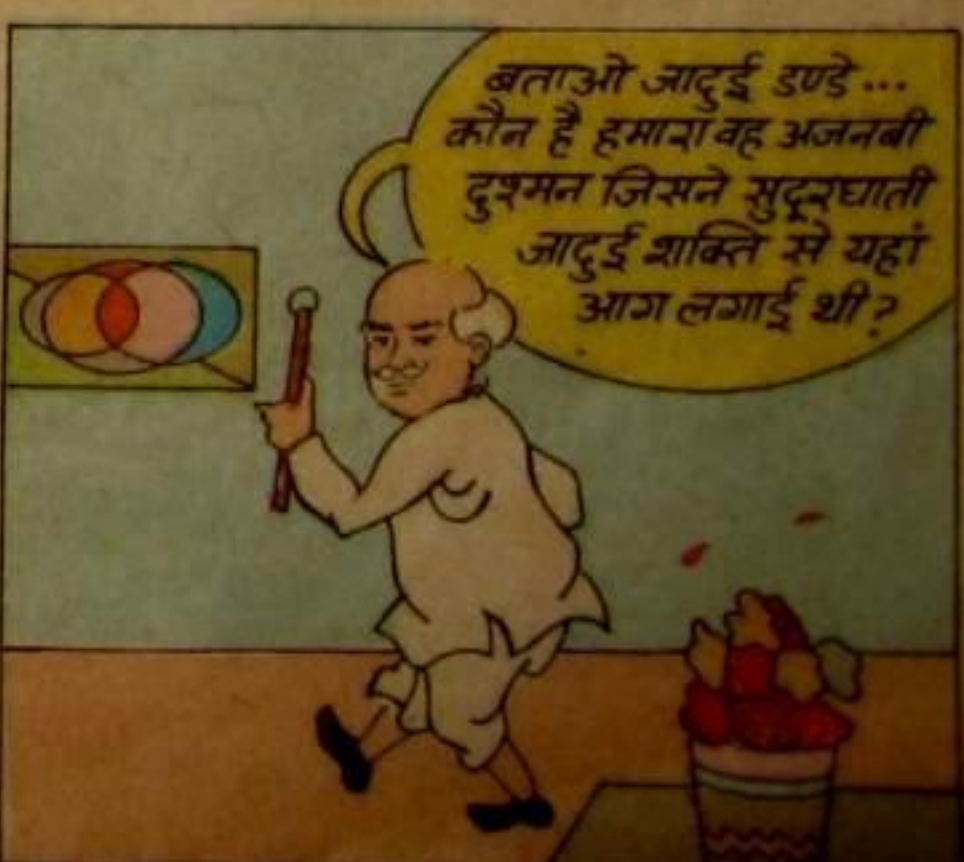 बताओ जादुई डण्डे...
कौन है हमारा वह अजनबी
दुश्मन जिसने सुदूरघाती
जादुई शक्ति से यहां
आग लगाई थी?